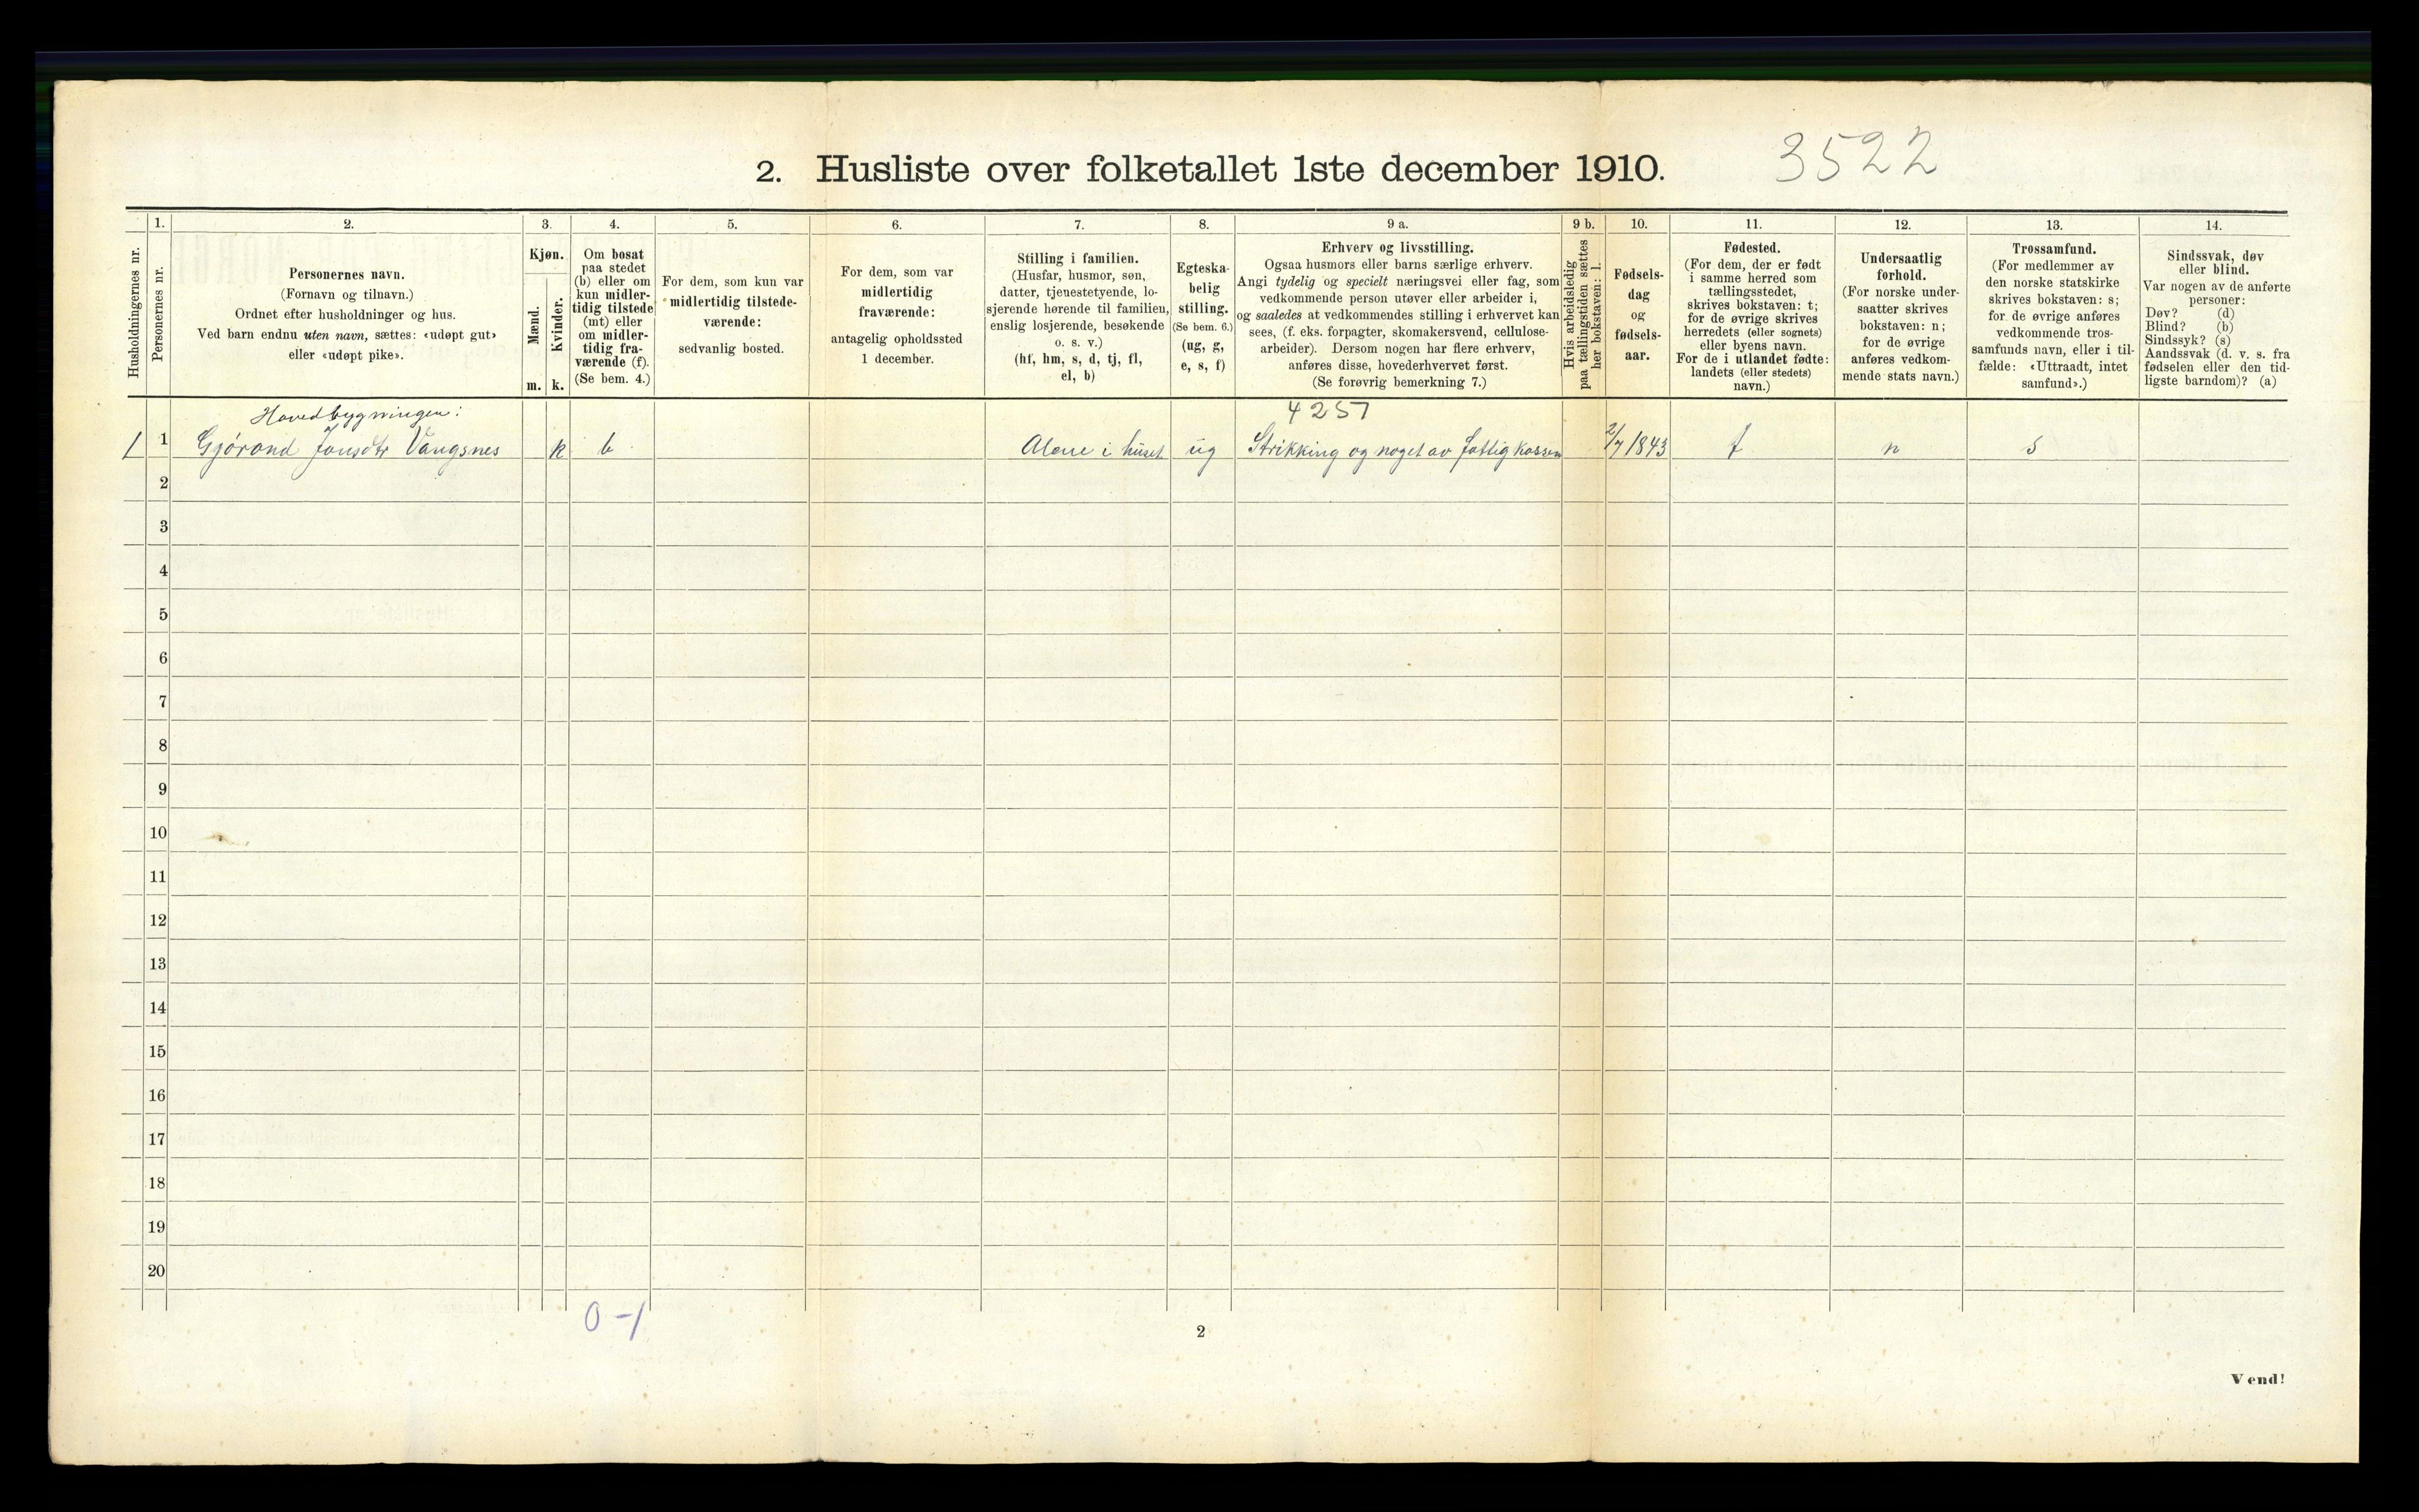 2. Husliste over folketallet 1ste december 1910.
3522
Husholdningernes nr.
1.
Personernes nr.
2.
Personernes navn.
(Fornavn og tilnavn.)
Ordnet efter husholdninger og hus.
Ved barn endnu uten navn, sættes: «udøpt gut»
eller «udøpt pike».
3.
Kjøn.
Mænd.
m.
Kvinder.
k.
4.
Om bosat
paa stedet
(b) eller om
kun midler-
tidig tilstede
(mt) eller
om midler-
tidig fra-
værende (f).
(Se bem. 4.)
5.
For dem, som kun var
midlertidig tilstede-
værende:
sedvanlig bosted.
6.
For dem, som var
midlertidig
fraværende:
antagelig opholdssted
1 december.
7.
Stilling i familien.
(Husfar, husmor, søn,
datter, tjenestetyende, lo-
sjerende hørende til familien,
enslig losjerende, besøkende
o. s. v.)
(hf, hm, s, d, tj, fl,
el, b)
8.
Egteska-
belig
stilling.
(Se bem. 6.)
(ug, g,
e, s, f)
9 a.
Erhverv og livsstilling.
Ogsaa husmors eller barns særlige erhverv.
Angi tydelig og specielt næringsvei eller fag, som
vedkommende person utøver eller arbeider i,
og saaledes at vedkommendes stilling i erhvervet kan
sees, (f. eks. forpagter, skomakersvend, cellulose-
arbeider). Dersom nogen har flere erhverv,
anføres disse, hovederhvervet først.
(Se forøvrig bemerkning 7.)
9 b.
Hvis arbeidsledig
paa tællingstiden sættes
her bokstaven: l.
10.
Fødsels-
dag
og
fødsels-
aar.
11.
Fødested.
(For dem, der er født
i samme herred som
tællingsstedet,
skrives bokstaven: t;
for de øvrige skrives
herredets (eller sognets)
eller byens navn.
For de i utlandet fødte:
landets (eller stedets)
navn.)
12.
Undersaatlig
forhold.
(For norske under-
saatter skrives
bokstaven: n;
for de øvrige
anføres vedkom-
mende stats navn.)
13.
Trossamfund.
(For medlemmer av
den norske statskirke
skrives bokstaven: s;
for de øvrige anføres
vedkommende tros-
samfunds navn, eller i til-
fælde: «Uttraadt, intet
samfund».)
14.
Sindssvak, døv
eller blind.
Var nogen av de anførte
personer:
Døv? (d)
Blind? (b)
Sindssyk? (s)
Aandssvak (d. v. s. fra
fødselen eller den tid-
ligste barndom)? (a)
Hovedbygningen:
4257
1 1 Gjørond Jonsdtr Vangsnes k b Alene i huset ug Strikking og noget av fattigkassen 2/7 1843 t n s
2
3
4
5
6
7
8
9
10
11
12
13
14
15
16
17
18
19
20
0-1
2
Vend!